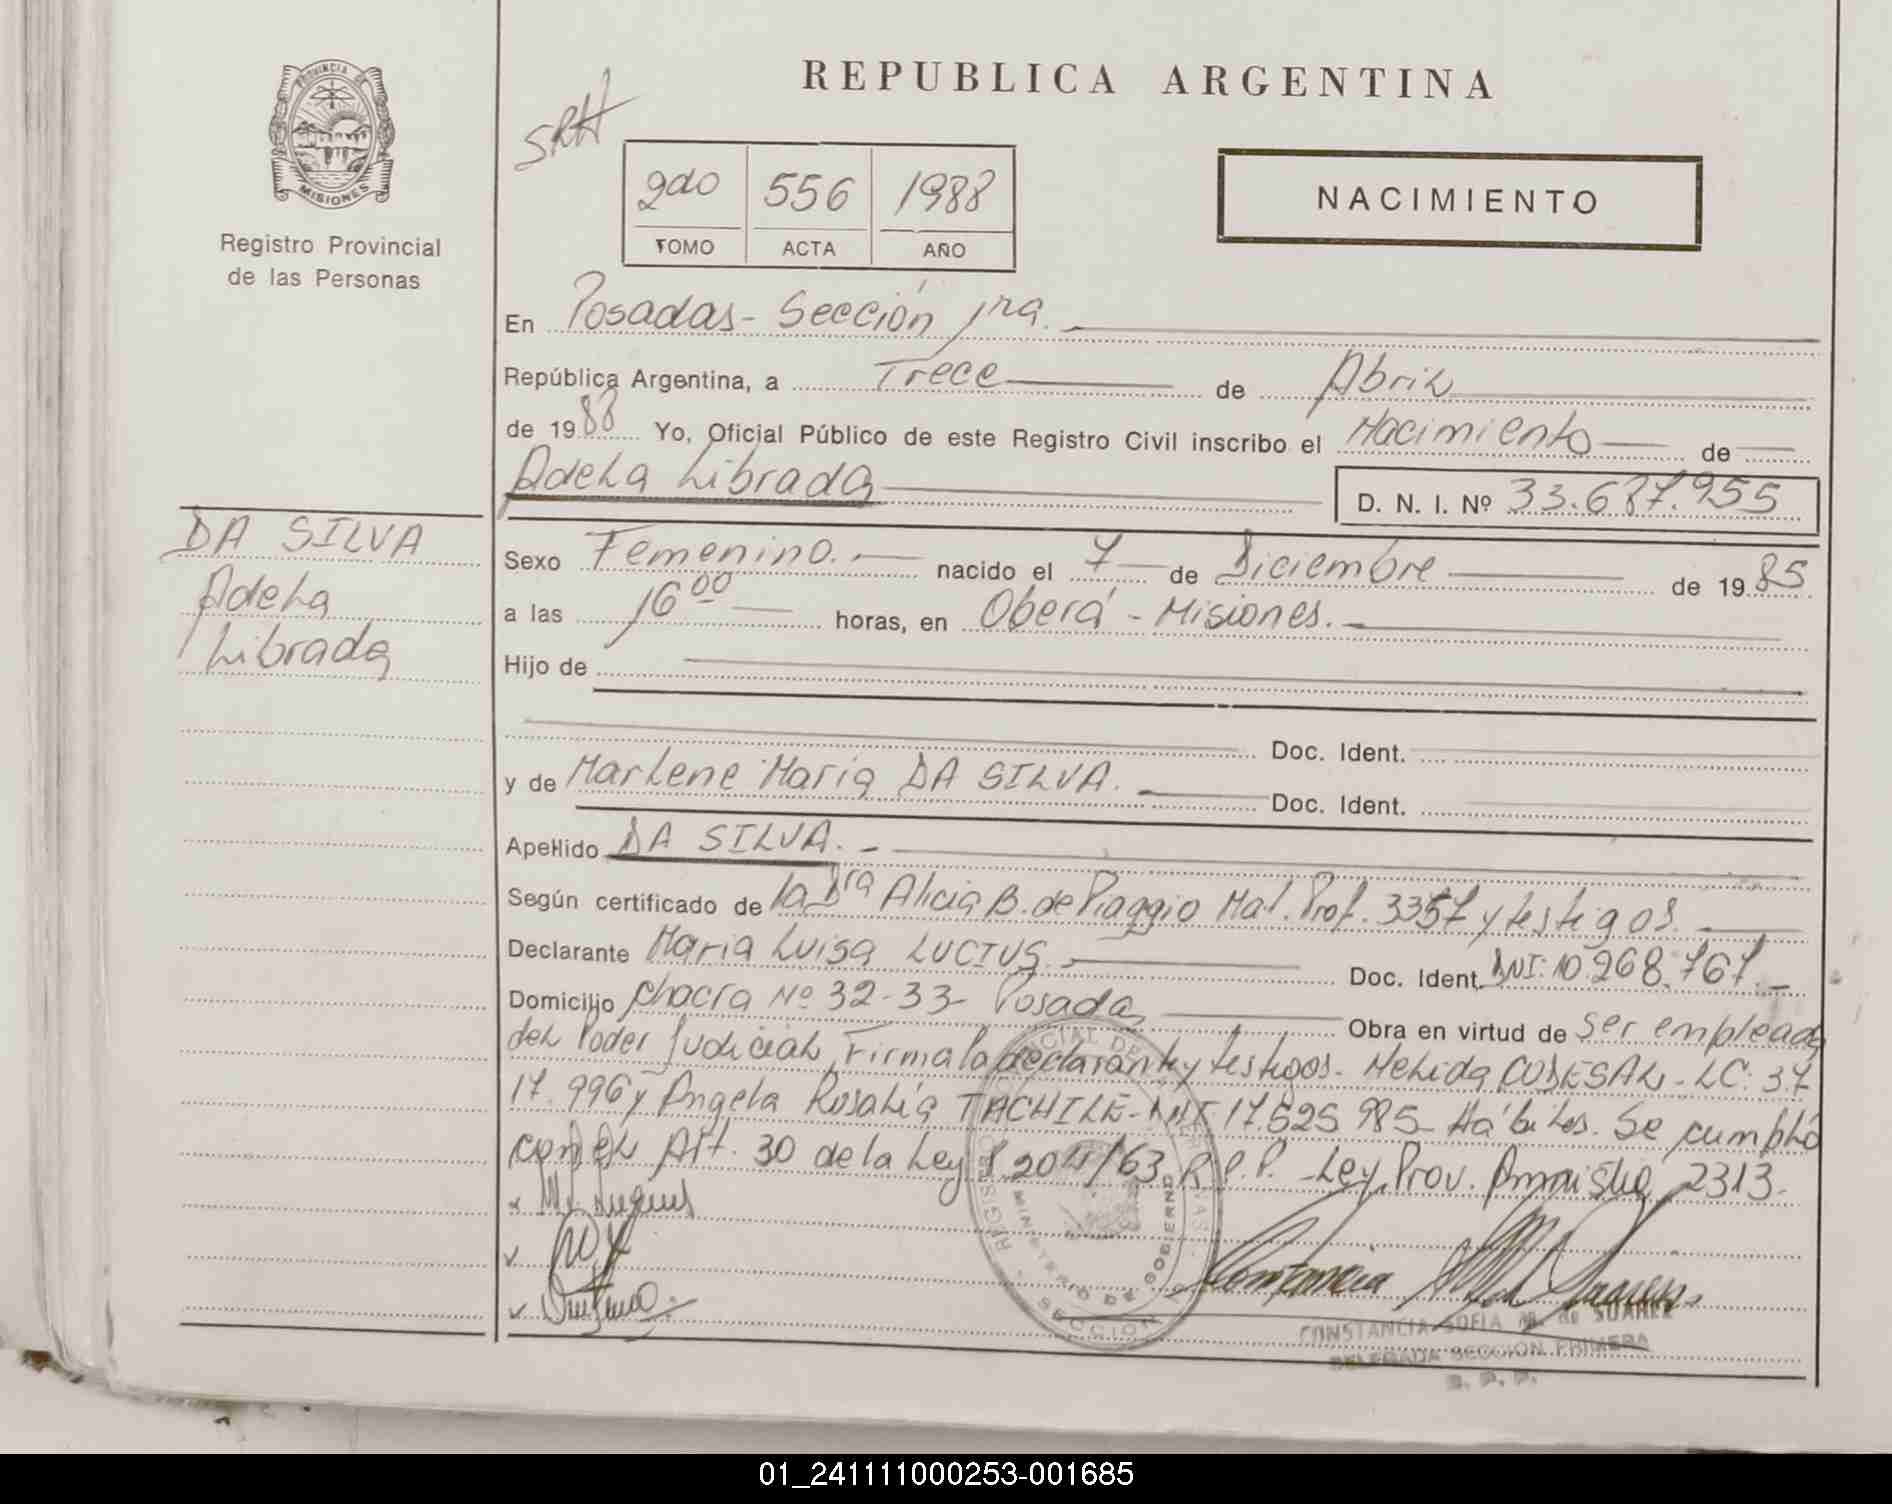 PROVINCIA DE
MISIONES
Registro Provincial
de las Personas
REPUBLICA ARGENTINA
SRH
2do 556 1988
TOMO ACTA AÑO
NACIMIENTO
En Posadas - Sección 1ra.
República Argentina, a Trece de Abril
de 1988 Yo, Oficial Público de este Registro Civil inscribo el Nacimiento de
Adela Librada D. N. I. Nº 33.687.955
DA SILVA
Adela
Librada
Sexo Femenino. nacido el 7 de Diciembre de 1985
a las 16 00 horas, en Oberá - Misiones.
Hijo de
Doc. Ident.
y de Marlene Maria DA SILVA. Doc. Ident.
Apellido DA SILVA. -
Según certificado de la Dra Alicia B. de Piaggio Mat. Prof. 3357 y testigos.
Declarante Maria Luisa LUCIUS. Doc. Ident. DNI: 10.268.767. -
Domicilio chacra Nº 32-33- Posadas Obra en virtud de ser empleada
del Poder Judicial, Firma la declarante y testigos. Melida CODESAL - LC: 37
17.996 y Angela Rosalia TACHILE - DNI 17.525.985 - Hábiles. Se cumplió
con el Art. 30 de la Ley 8.204/63 R.P.P. - Ley Prov. Amnistia 2313.
MINISTERIO DE GOBIERNO
SECCION
CONSTANCIA SOFIA M. de SUAREZ
DELEGADA SECCION PRIMERA
R. P. P.
01_241111000253-001685